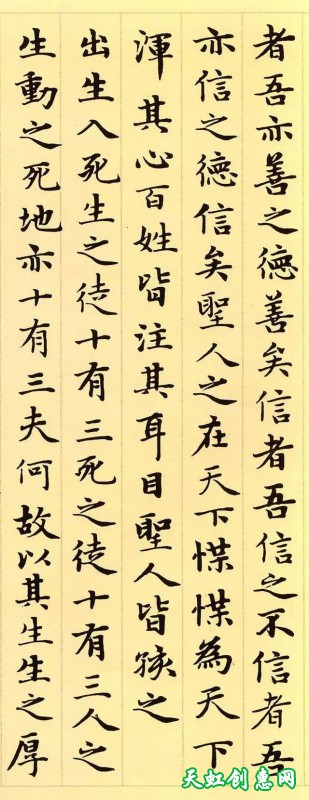 者吾亦善之德善矣信者吾信之不信者吾
亦信之德信矣聖人之在天下惵惵為天下
渾其心百姓皆注其耳目聖人皆孩之
出生入死生之徒十有三死之徒十有三人之
生動之死地亦十有三夫何故以其生生之厚
天虹创意网